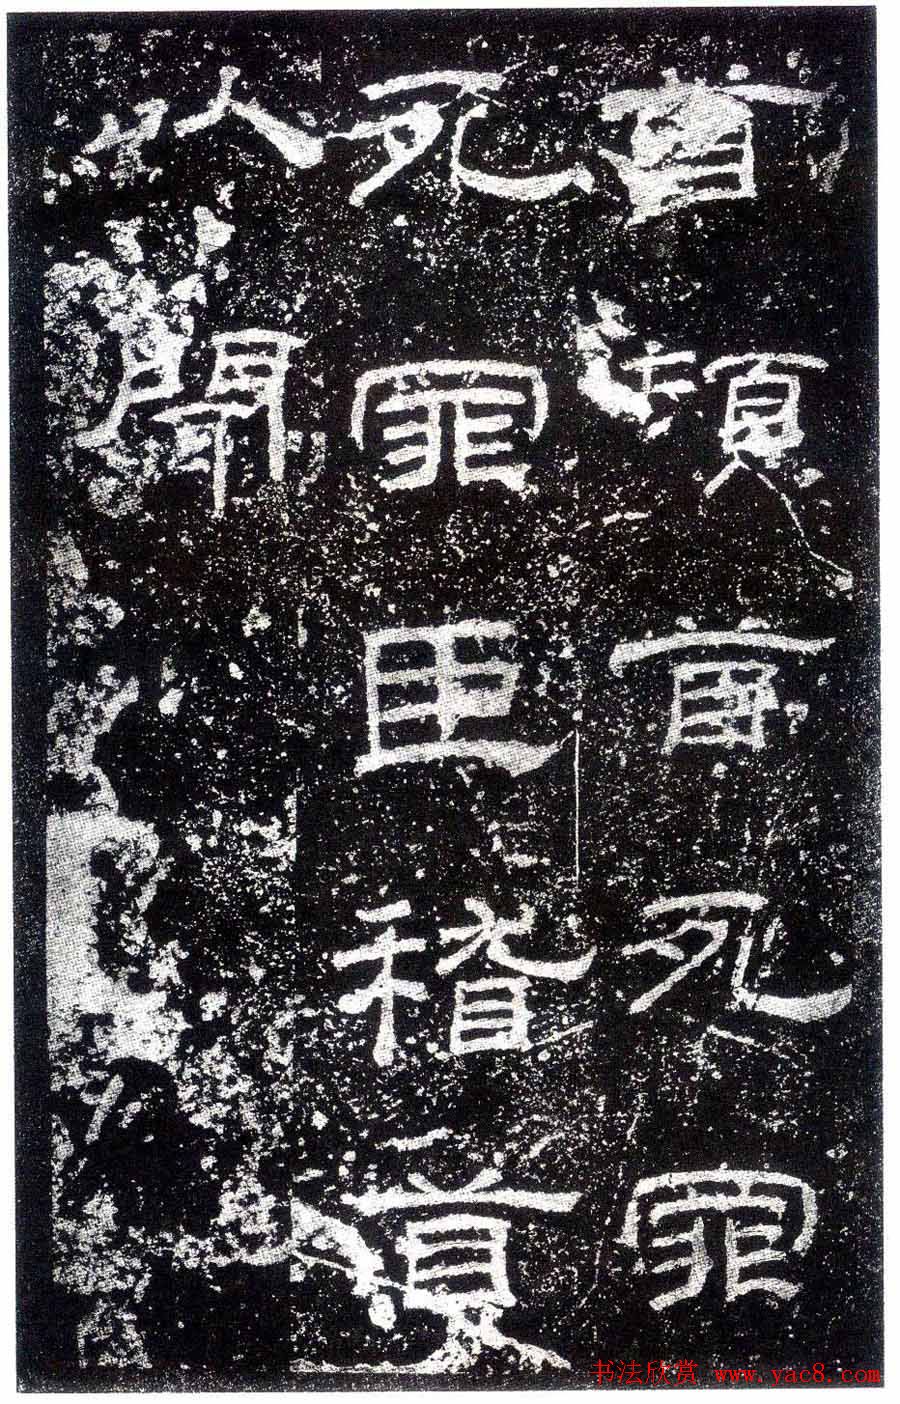 首頓首死罪
死罪臣稽道
以聞
书法欣赏 www.yac8.com